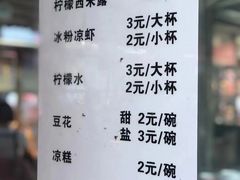 柠檬西米露
3元/大杯
冰粉凉虾 2元/小杯
3元/大杯
柠檬水 2元/小杯
豆花 甜 2元/碗
盐 3元/碗
凉糕
2元/碗